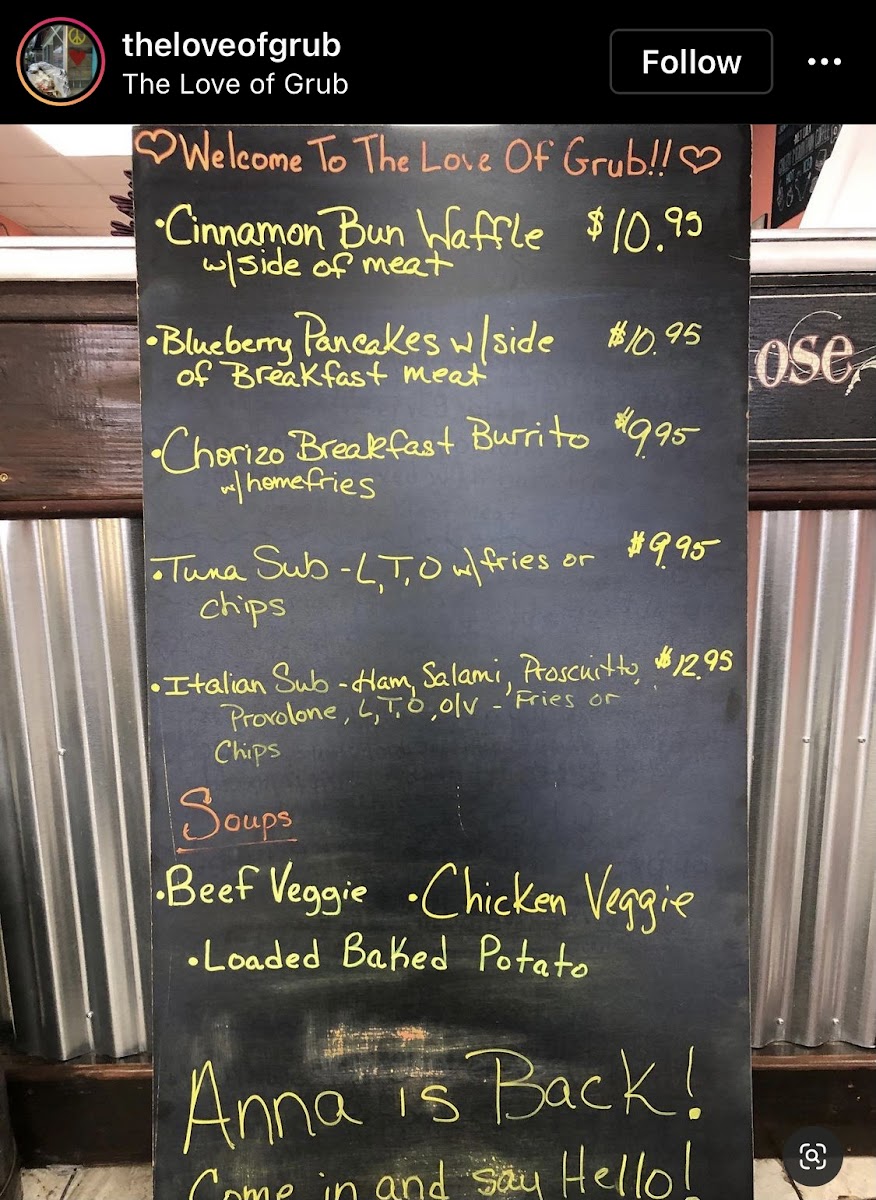 theloveofgrub
The Love of Grub
Follow
♡Welcome To The Love Of Grub!!♡
•Cinnamon Bun Waffle $10.95
w/side of meat
•Blueberry Pancakes w/side $10.95
of Breakfast meat
•Chorizo Breakfast Burrito $9.95
w/homefries
•Tuna Sub - L, T, O w/fries or $9.95
chips
•Italian Sub - Ham, Salami, Proscuitto, $12.95
Provolone, L, T, O, o/v - Fries or
Chips
Soups
•Beef Veggie •Chicken Veggie
•Loaded Baked Potato
Anna is Back!
Come in and say Hello!
ose,